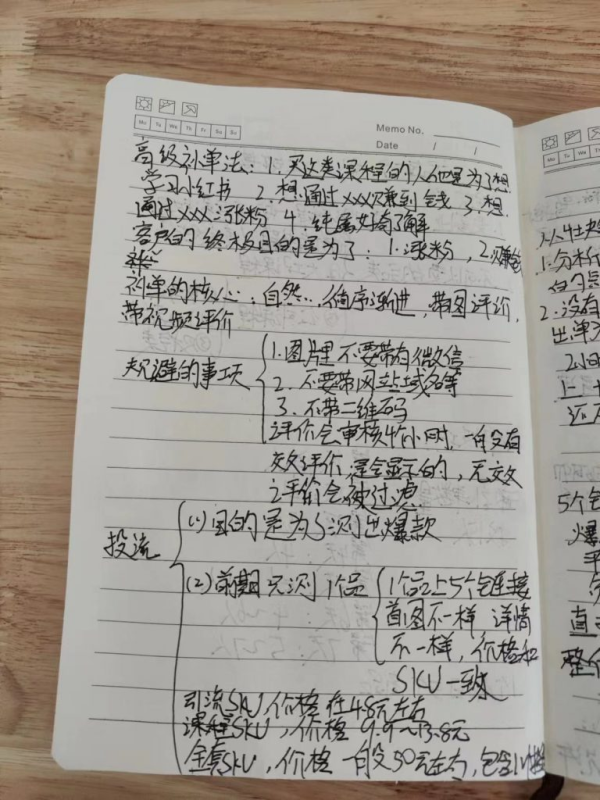 Mo Tu We Th Fr Sa Su
Memo No.
Date / /
高级补单法：1. 买这类课程的人他是为了想
学习小红书 2. 想通过xxx赚到钱 3. 想
通过xxx涨粉 4. 纯属好奇了解
客户的终极目的是为了：1. 涨粉，2. 赚钱
补单的核心：自然…循序渐进，带图评价，
带视频评价
规避的事项
1. 图片里不要带有微信
2. 不要带网站域名等
3. 不带二维码
评价会审核4个小时，一般没有
效评价，是会显示的，无效
评价会被过滤
投流
(1) 目的是为了测出爆款
(2) 前期只测1个品
1个品上5个链接
首图不一样 详情
不一样，价格和
SKU一致
引流SKU，价格在4.8元左右
课程SKU，价格9.9~13.8元
全套SKU，价格一般30元左右，包含
从
1. 分析
的
2. 没有
出单
2小时
上
还
5个
爆
直
整个